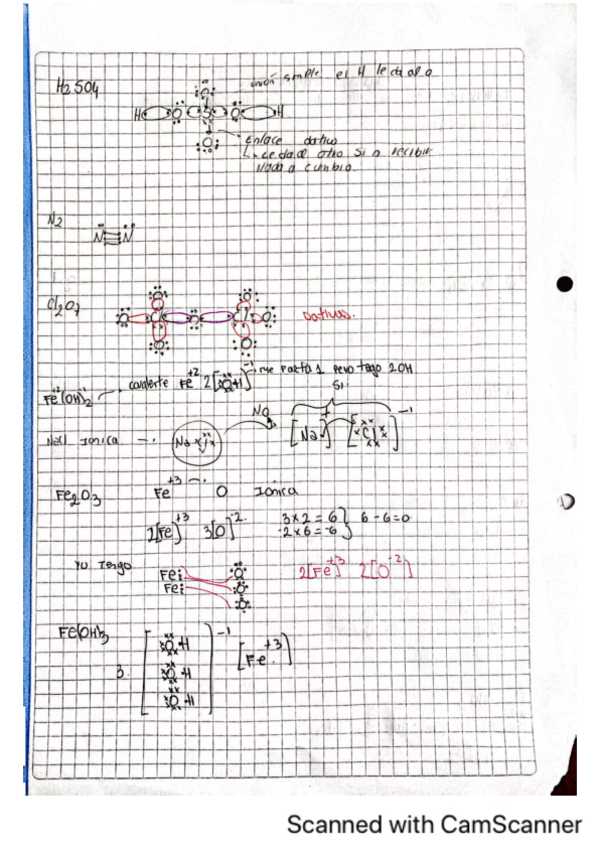 H2SO4
unión simple el H le da al O
H O S O H
O
O
Enlace dativo
Le da al otro sin recibir
Nada a cambio.
N2
N≡N
Cl2O7
O Cl O Cl O
Dativos.
Fe+2(OH)2-1 covalente Fe+2 2[OH]-1 me falta 1 pero tengo 2OH
NO Si
NaCl Ionica Na Cl [Na]+ [Cl]-1
Fe2O3 Fe+3 O Iónica
2[Fe]+3 3[O]-2 3x2=6 6-6=0
-2x6=-6
Yo Tengo
Fe: O
Fe: O
O
2[Fe]+3 2[O-2]
Fe(OH)3
3. [O H
O H
O H]-1 [Fe+3]
Scanned with CamScanner